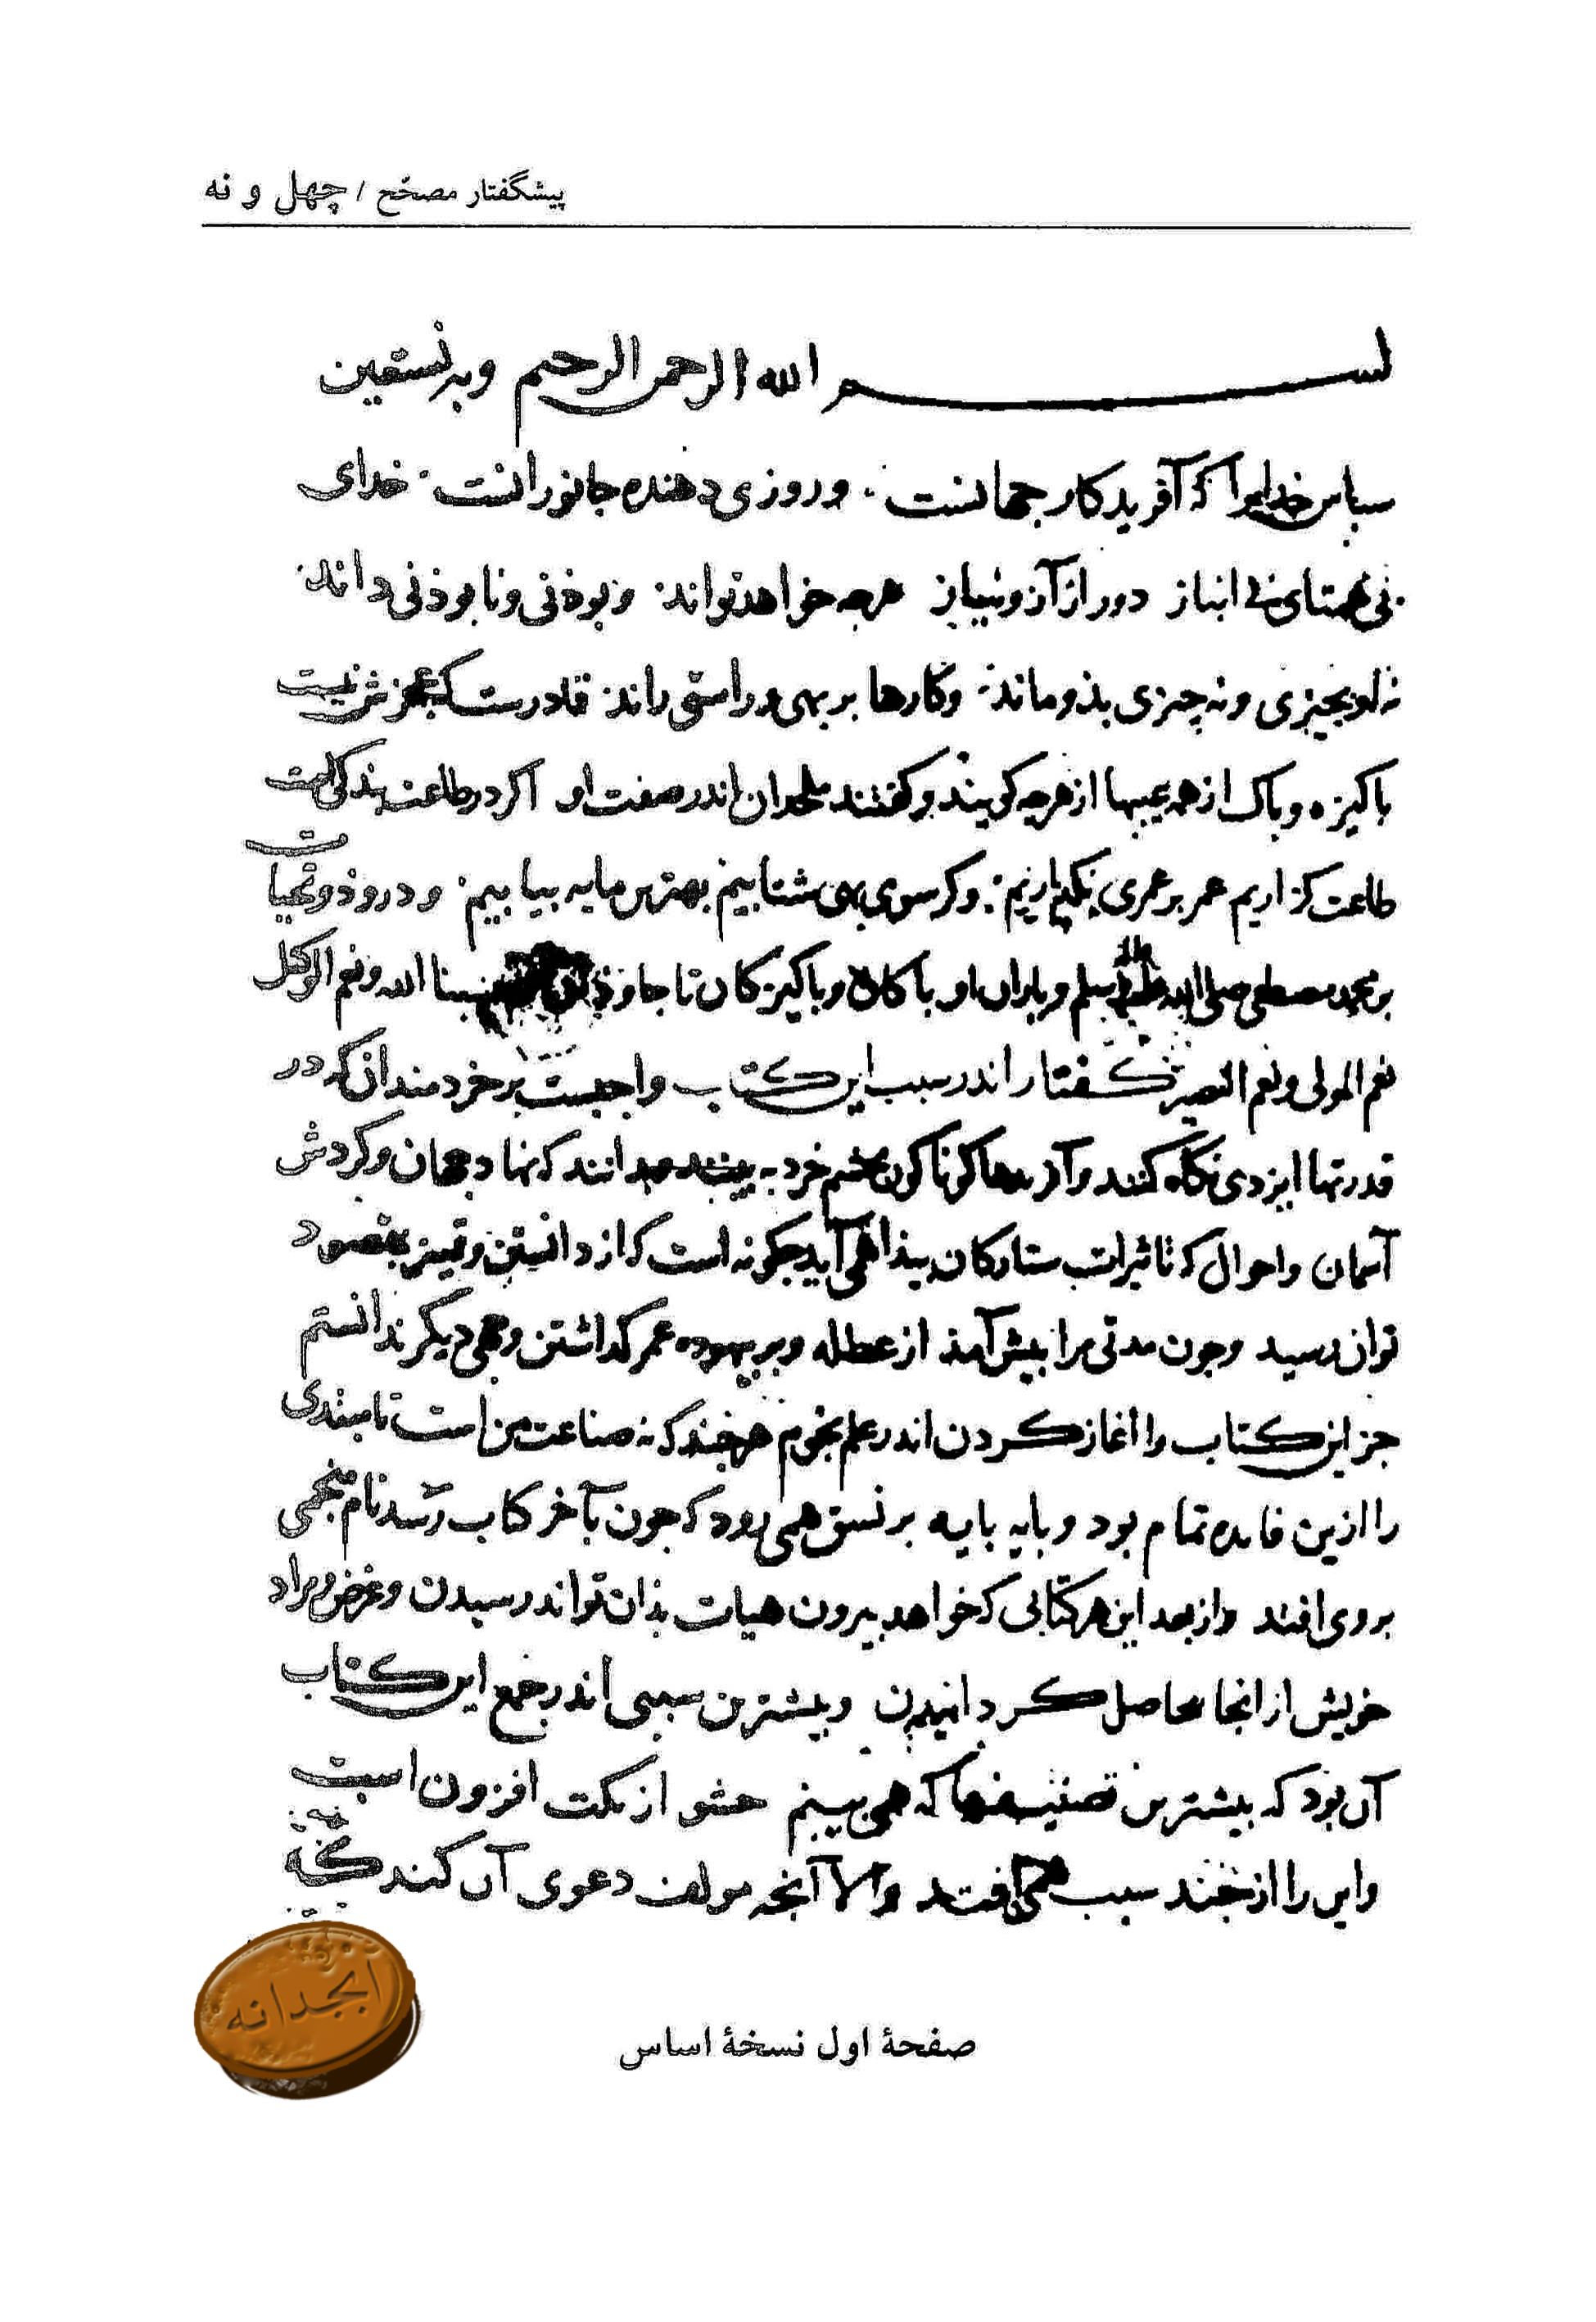 پیشگفتار مصحّح / چهل و نه
بسم الله الرحمن الرحیم وبه نستعین
سباس خدایرا که آفریدکار جهانست وروزی دهنده جانورانست خدای
بی همتای بی انباز دور از آز ونیاز هرچه خواهد تواند وبوذنی ونابوذنی داند
نه او بچیزی ونه چیزی بذو ماند وکارها بر بهی وراستی راند قادرست که عجزش نیست
باکیزه وباک از همه عیبها از هرچه کویند وکفتند ملحدان اندر صفت او اکر در طاعت بندکی است
طاعت کزاریم عمر بر عمری وکر سوی بهی شتابیم بهترین مایه بیابیم ودروذ وتحیات
بر محمد مصطفی صلی الله علیه وسلم ویاران او باکان وباکیزکان تا جاوذان حسبنا الله ونعم الوکیل
نعم المولی ونعم النصیر کفتار اندر سبب این کتاب واجبست بر خردمندان که در
قدرتها ایزدی نکاه کنند و کوناکون بچشم خرد به بینند بدانند که نهاد جهان وکردش
آسمان واحوال که تاثیرات ستارکان بیذا همی آید جکونه است که از دانستن وتمییز بمقصود
توان رسید وجون مدتی مرا بیش آمذ از عطله وبر بیهوده عمر کذاشتن وهمی دیکر ندانستم
جز این کتاب را آغاز کردن اندر علم نجوم هرجند که نه صناعت من است تا مبتدی
را ازین فایده تمام بود وبایه بایه بر نسق همی رود که جون بآخر کتاب رسد نام منجمی
بر وی افتد واز بعد این هر کتابی که خواهد بیرون هیات بذان تواند رسیدن وغرض ومراد
خویش از آنجا حاصل کردانیدن وبیشترین سببی اندر جمع این کتاب
آن بود که بیشترین تصنیفها که همی بینم حشو از نکت افزون است
واین را از جند سبب همی افتد والا آنچه مولف دعوی آن کند که
ابجدانه
صفحهٔ اول نسخهٔ اساس